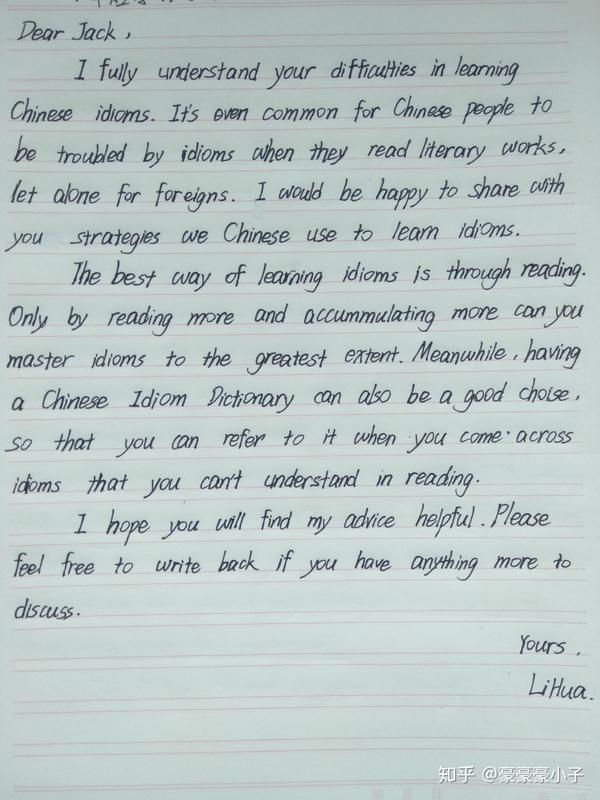 Dear Jack,
I fully understand your difficulties in learning
Chinese idioms. It's even common for Chinese people to
be troubled by idioms when they read literary works,
let alone for foreigns. I would be happy to share with
you strategies we Chinese use to learn idioms.
The best way of learning idioms is through reading.
Only by reading more and accummulating more can you
master idioms to the greatest extent. Meanwhile, having
a Chinese Idiom Dictionary can also be a good choise,
so that you can refer to it when you come across
idioms that you can't understand in reading.
I hope you will find my advice helpful. Please
feel free to write back if you have anything more to
discuss.
Yours,
LiHua.
知乎 @豪豪豪小子